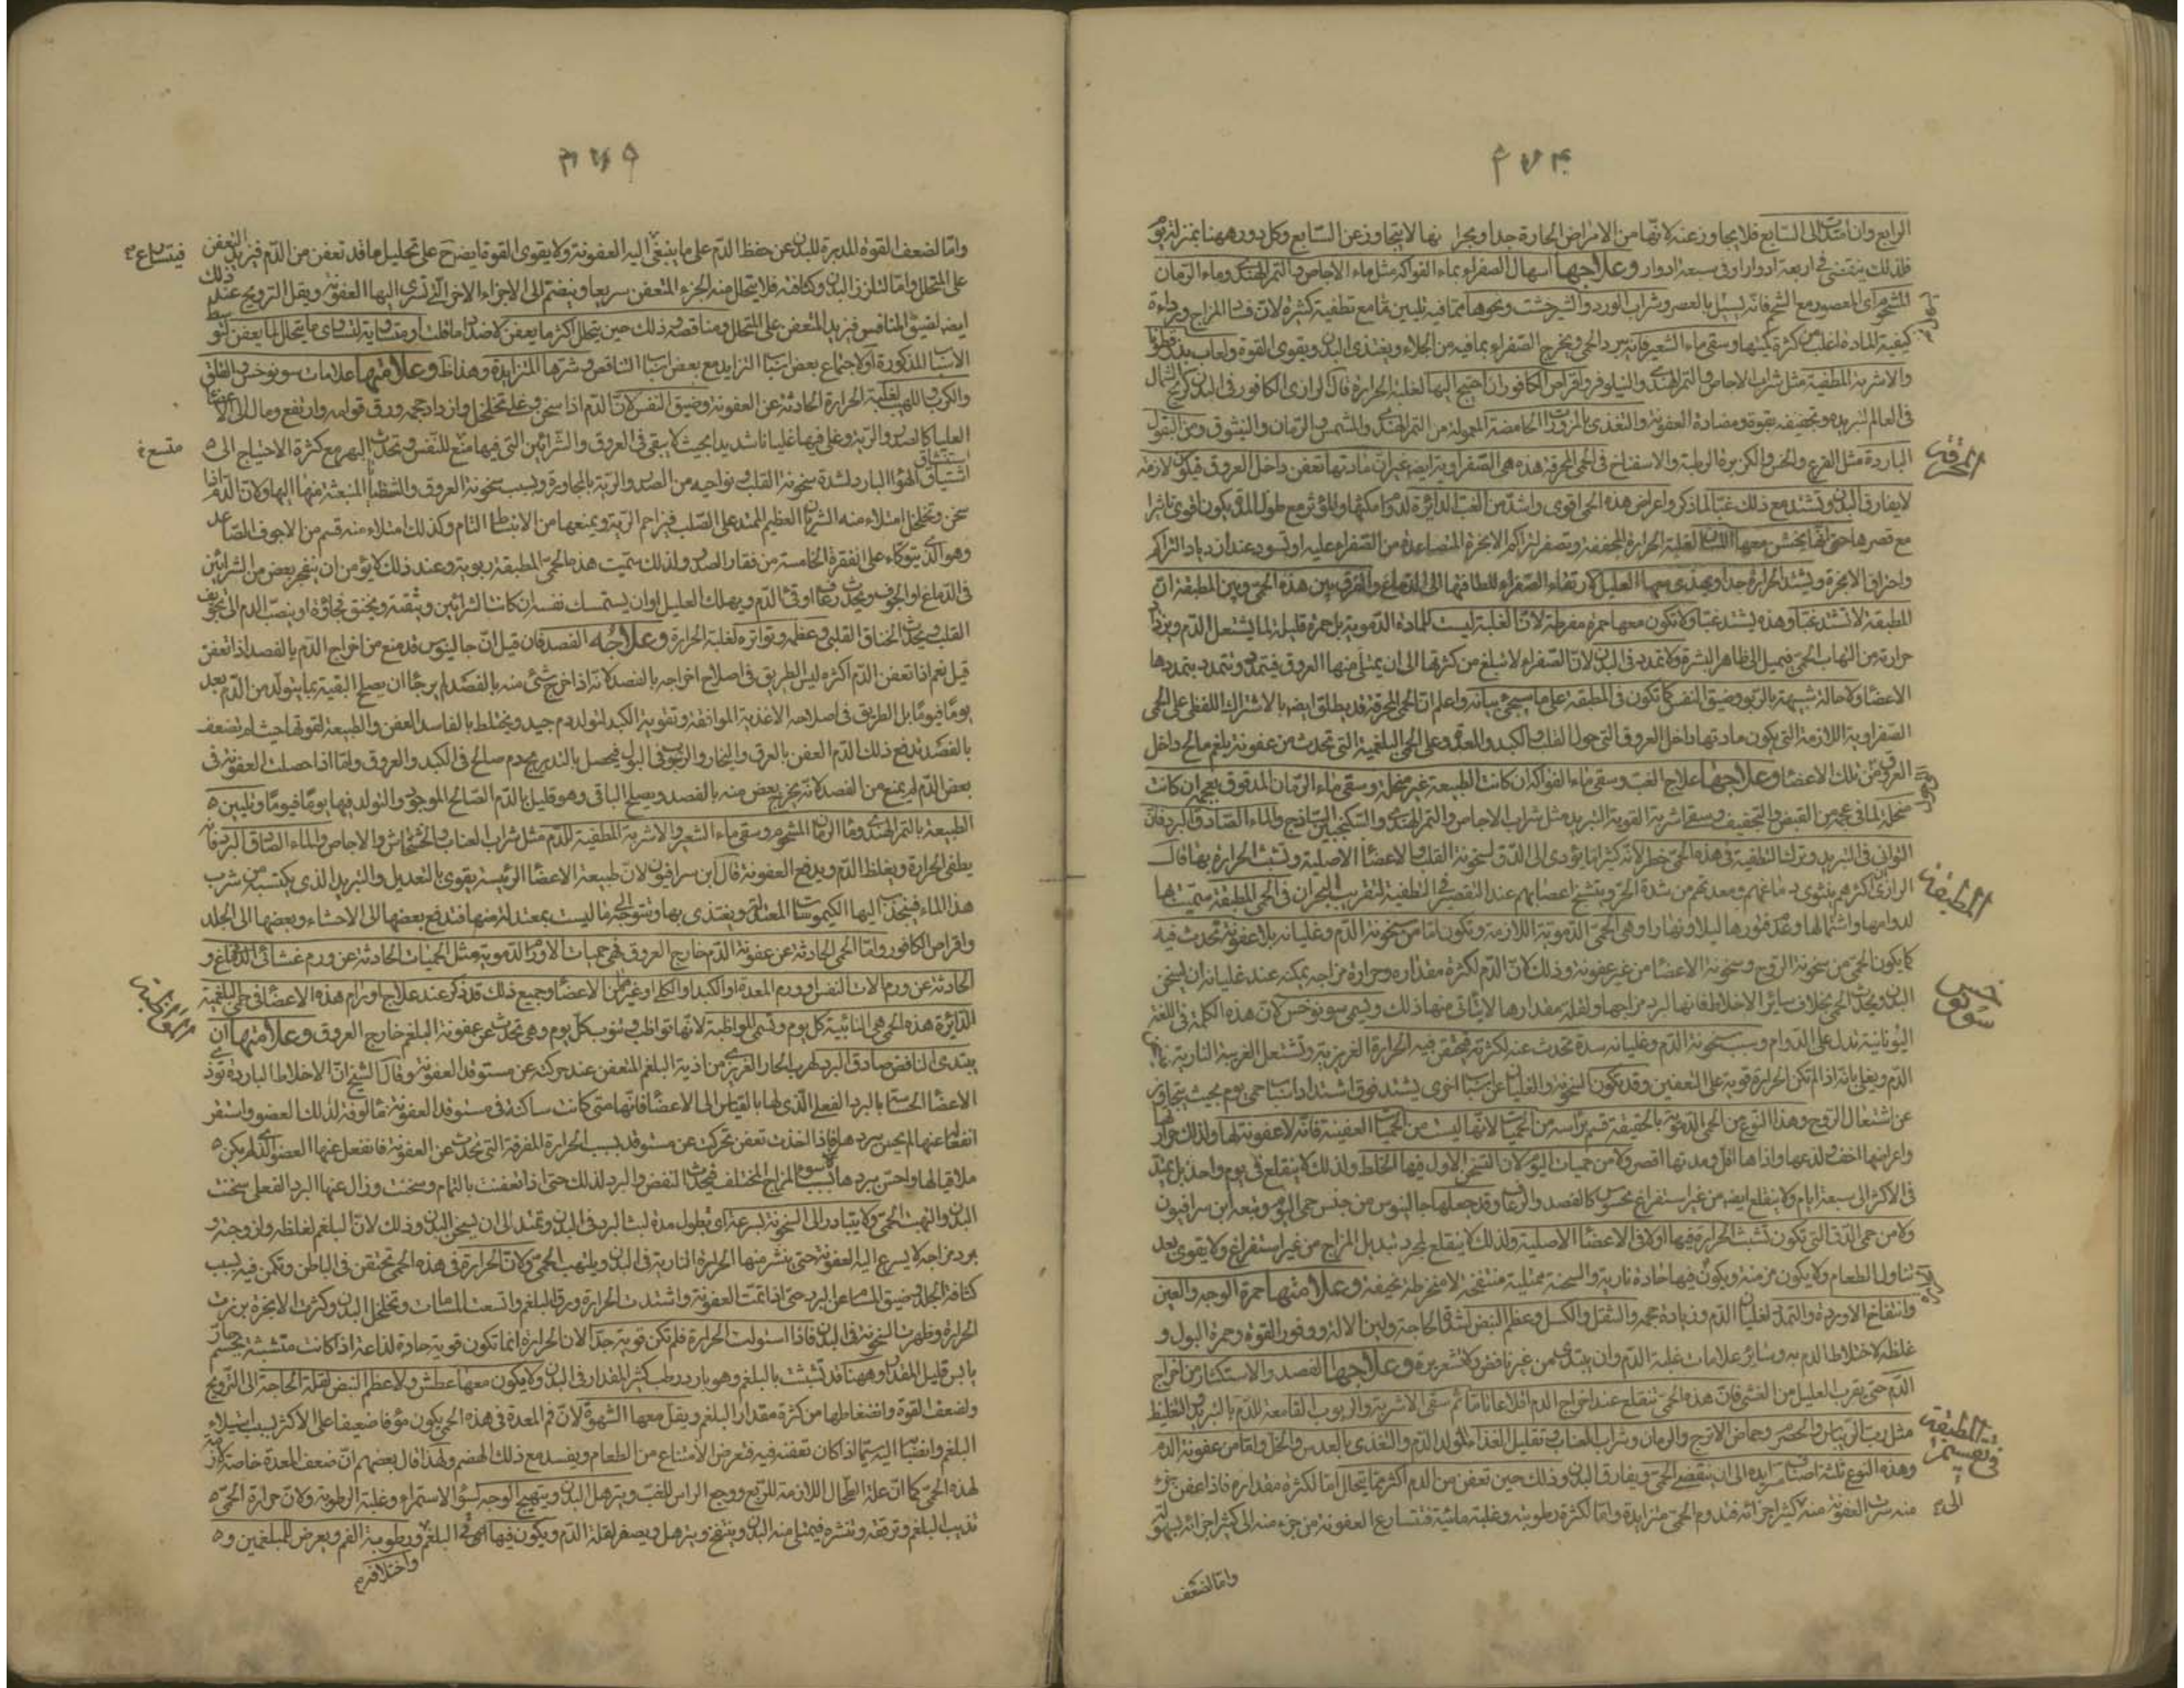 ٣٧٤
الرابع وان امتدت الى السابع فلا يجاوز عنه لانها من الامراض الحارة جدا وبحرانها لا يتجاوز عن السابع وكل دور ههنا بمنزلة يوم
فلذلك ينقضى فى اربعة ادوار او فى سبعة ادوار وعلاجها اسهال الصفراء بماء الفواكه مثل ماء الاجاص والتمر الهندى وماء الرمان
المعصور مع الشحم فانه يسهل بالعصر وشراب الورد والشيرخشت ونحوها مما فيه تليين ما مع تطفية كثيرة لان فساد المزاج ورداءة
كيفية المادة اغلب من كثرة كميتها وسقى ماء الشعير فانه يبرد الحمى ويخرج الصفراء بما فيه من الجلاء ويغتذى البدن ويقوى القوة ولعاب بذر قطونا
والاشربة المطفية مثل شراب الاجاص والتمر الهندى والنيلوفر واقراص الكافور ان احتيج اليها لغلبة الحرارة قال الرازى الكافور فى البدن كريح الشمال
فى العالم لتبريده وتجفيفه بقوة ومضادة العفونة والتغذى بالمزورات الحامضة المعمولة من التمر الهندى والمشمش والرمان والنيشوق ومن البقول
الباردة مثل القرع والخس والكزبرة الرطبة والاسفناخ فى الحمى المحرقة هذه هى الصفراوية ايضا غير ان مادتها تعفن داخل العروق فيكون لازمة
لا يفارق البدن وتشتد مع ذلك غبا لما ذكر واعراض هذه الحمى اقوى واشد من الغب الدائرة لدوامها
مع قصرها حتى انها يخشن معها اللسان لغلبة الحرارة المجففة ويصفر لتراكم الابخرة المتصاعدة من الصفراء عليه او تسود عند ازدياد التراكم
واحراق الابخرة ويشتد الحرارة جدا ويهذى معها العليل لارتقاء الصفراء للطافتها الى الدماغ والفرق بين هذه الحمى وبين المطبقة ان
المطبقة لا تشتد غبا وهذه يشتد غبا ولا تكون معها حمرة مفرطة لان الغلبة ليست للمادة الدموية بل حمرة قليلة لما يشتعل الدم
حرارة من التهاب الحمى فيميل الى ظاهر البشرة ولا تمدد فى البدن لان الصفراء لا تبلغ من كثرتها الى ان يمتلئ منها العروق فيتمدد وتتمدد بتمددها
الاعضاء ولا حالة شبيهة بالربو وضيق النفس كما تكون فى المطبقة على ما سيجئ بيانه واعلم ان الحمى المحرقة قد يطلق ايضا بالاشتراك اللفظى على الحمى
الصفراوية اللازمة التى يكون مادتها داخل العروق التى حول القلب والكبد والمعدة وعلى الحمى البلغمية التى تحدث من عفونة بلغم مالح داخل
العروق من تلك الاعضاء وعلاجها علاج الغب وسقى ماء الفواكه ان كانت الطبيعة غير منحلة وسقى ماء الرمان المدقوق بعجمه ان كانت
منحلة لما فى عجمه من القبض والتجفيف وسقى اشربة القوية التبريد مثل شراب الاجاص والتمر الهندى والسكنجبين الساذج والماء الصادق البرد فان
التوانى فى التبريد وترك التطفية فى هذه الحمى خطر لانه كثيرا ما يؤدى الى الدق لسخونة القلب والاعضاء الاصلية وتشبث الحرارة بها قال
الرازى اكثرهم ينشوى دماغهم ومعدتهم من شدة الحر ويتشنج اعضاؤهم عند التقصير فى التطفية لتقريب البحران فى الحمى المطبقة سميت بها
لدوامها واشتمالها وعدم فتورها ليلا ونهارا وهى الحمى الدموية اللازمة وتكون اما من سخونة الدم وغليانه بلا عفونة تحدث فيه
كما يكون الحمى من سخونة الروح وسخونة الاعضاء من غير عفونة وذلك لان الدم لكثرة مقداره وحرارة مزاجه يمكنه عند غليانه ان يسخن
البدن ويحدث الحمى بخلاف سائر الاخلاط فانها لبرد مزاجها ولقلة مقدارها لا يتأتى منها ذلك ويسمى سونوخس لان هذه الكلمة فى اللغة
اليونانية تدل على الدوام وسبب سخونة الدم وغليانه سدة تحدث عند كثرته فيحتقن فيه الحرارة الغريزية وتشتعل الغريبة النارية
الدم ويغلى بها اذا لم تكن الحرارة قوية على التعفين وقد تكون السخونة والغليان عن اسباب اخرى يشتد فوق اشتداد اسباب حمى يوم بحيث يتجاوز
عن اشتعال الروح وهذا النوع من الحمى الدموية بالحقيقة قسم برأسه من الحميات لانها ليست من الحميات العفنية فانه لا عفونة لها ولذلك
واعراضها اخف ولذعها واذاها اقل ومدتها اقصر ولا من حميات اليوم لان التسخن الاول فيها الخلط ولذلك لا ينقلع فى يوم واحد بل يمتد
فى الاكثر الى سبعة ايام ولا ينقلع ايضا من غير استفراغ محسوس كالفصد والرعاف وقد جعلها جالينوس من جنس حمى اليوم وتبعه ابن سرافيون
ولا من حمى الدق التى تكون تشبث الحرارة فيها اولا فى الاعضاء الاصلية ولذلك لا ينقلع بمجرد تبديل المزاج من غير استفراغ ولا يقوى بعد
تناول الطعام ولا يكون مزمنة ويكون فيها حادة نارية والسحنة ممتلية منتفخة لا منخرطة نحيفة وعلامتها حمرة الوجه والعين
وانتفاخ الاوردة والتمدد لغليان الدم وزيادة حجمه والثقل والكسل وعظم النبض لشدة الحاجة ولين الآلة ووفور القوة وحمرة البول و
غلظه لاختلاط الدم به وسائر علامات غلبة الدم وان يبتدئ من غير نافض ولا قشعريرة وعلاجها الفصد والاستكثار من اخراج
الدم حتى يقرب العليل من الغشى فان هذه الحمى تنقلع عند اخراج الدم اقلاعا تاما ثم سقى الاشربة والربوب القامعة للدم بالتبريد والتغليظ
مثل رب الريباس والحصرم وحماض الاترج والرمان وشراب العناب وتقليل الغذاء لتولد الدم والتغذى بالعدس والخل واما من عفونة الدم
وهذه النوع ثلثة اصناف متزايدة الى ان ينقضى الحمى ويفارق البدن وذلك حين تعفن من الدم اكثر مما يتحلل اما لكثرة مقداره فاذا عفن جزء
منه سرت العفونة منه كثير اجزائه فتدوم الحمى متزايدة واما لكثرة رطوبته وغلبة مائيته فتتسارع العفونة من جزء منه الى كثير اجزائه بسهولة
المحرقة
المطبقة
سونوخس
فى تقسيم المطبقة
الى
واما لضعف
٣٧٥
واما لضعف القوة المدبرة للبدن عن حفظ الدم على ما ينبغى اليه العفونة ولا يقوى القوة ايضا على تحليل ما قد تعفن من الدم فيزيد التعفن
على المتحلل واما لتلزز البدن وكثافته فلا يتحلل منه الجزء المتعفن سريعا وينضم الى الاجزاء الاخر التى تسرى اليها العفونة ويقل الترويح عند ذلك
ايضا لضيق المنافس فيزيد المتعفن على المتحلل ومتناقصة وذلك حين يتحلل اكثر ما يعفن لاضداد ما قلت او متساوية لتساوى ما يتحلل لما يعفن لتوسط
الاسباب المذكورة او لاجتماع بعض اسباب التزايد مع بعض اسباب التناقص وشرها المتزايدة وهذا ظاهر وعلامتها علامات سونوخس والقلق
والكرب واللهب لغلبة الحرارة الحادثة عن العفونة وضيق النفس لان الدم اذا سخن وغلى تخلخل وازداد حجمه ورق قوامه وارتفع ومال الى الاعضاء
العليا كالصدر والرية وغلى فيها غليانا شديدا بحيث لا يبقى فى العروق والشرائين التى فيها متسع للتنفس وتحدث البهر مع كثرة الاحتياج الى
استنشاق الهواء البارد لشدة سخونة القلب ونواحيه من الصدر والرية بالمجاورة وبسبب سخونة العروق والشظايا المنبعثة منها اليها ولان الدم اذا
سخن وتخلخل امتلاء منه الشريان العظيم الممتد على الصلب فيزاحم الرية ويمنعها من الانبساط التام وكذلك امتلاء منه قسم من الاجوف الصاعد
وهو الذى يتوكاء على الفقرة الخامسة من فقار الصدر ولذلك سميت هذه الحمى المطبقة ربوية وعند ذلك لا يؤمن ان ينفجر بعض من الشرائين
فى الدماغ او الجوف ويحدث رعافا او قئ الدم ويهلك العليل او ان يستمسك نفسه ان كانت الشرائين وثيقة ويختنق فجاءة او ينصب الدم الى تجويف
القلب ويحدث الخناق القلبى وعظمه وتواتره لغلبة الحرارة وعلاجه الفصد فان قيل ان جالينوس قد منع من اخراج الدم بالفصد اذا تعفن
قيل نعم اذا تعفن الدم اكثره ليس الطريق فى اصلاحه اخراجه بالفصد لانه اذا اخرج شئ منه بالفصد لم يرج ان يصلح البقية بما يتولد من الدم بعد
يوما فيوما بل الطريق فى اصلاحه الاغذية الموافقة وتقوية الكبد لتولد دم جيد ويختلط بالفاسد العفن والطبيعة لقوتها حيث لم تضعف
بالفصد تدفع ذلك الدم العفن بالعرق والبخار والرسوب فى البول فيحصل بالتدريج دم صالح فى الكبد والعروق واما اذا حصلت العفونة فى
بعض الدم لم يمنع من الفصد لانه يخرج بعض منه بالفصد ويصلح الباقى وهو قليل بالدم الصالح الموجود والتولد فيها يوما فيوما وتليين
الطبيعة بالتمر الهندى وماء الرمان المشحوم وسقى ماء الشعير والاشربة المطفية للدم مثل شراب العناب والخشخاش والاجاص والماء الصادق البرد فانه
يطفى الحرارة ويغلظ الدم ويدفع العفونة قال ابن سرافيون لان طبيعة الاعضاء الرئيسة يقوى بالتعديل والتبريد الذى يكتسبه من شرب
هذا الماء فينجذب اليها الكيموسات المعتدلة ويغتذى بها وتتوجه الى ما ليست بمعتدلة منها فتدفع بعضها الى الاحشاء وبعضها الى الجلد
واقراص الكافور واما الحمى الحادثة عن عفونة الدم خارج العروق فهى حميات الاورام الدموية مثل الحميات الحادثة عن ورم غشائى الدماغ و
الحادثة عن ورم الات النفس وورم المعدة او الكبد او الكلى او غيرها من الاعضاء وجميع ذلك قد ذكر عند علاج اورام هذه الاعضاء فى حمى البلغمية
الدائرة هذه الحمى هى النائبة كل يوم وتسمى المواظبة لانها تواظب وتنوب كل يوم وهى تحدث عن عفونة البلغم خارج العروق وعلامتها ان
يبتدى النافض صادق البرد لهرب الحار الغريزى من اذية البلغم المتعفن عند حركته عن مستوقد العفونة وقال الشيخ ان الاخلاط الباردة تؤذى
الاعضاء الحساسة بالبرد الفعلى الذى لها بالقياس الى الاعضاء فانها متى كانت ساكنة فى مستوقد العفونة مألوفة لذلك العضو واستقر
انفعالها عنها لم يحس ببردها فاذا اخذت تعفن تحركت عن مستوقد بسبب الحرارة المفرقة التى تحدث عن العفونة فانفعل عنها العضو الذى لم يكن
ملاقيا لها واحس ببردها بسبب سوء المزاج المختلف فيحدث النفض والبرد لذلك حتى اذا تعفنت بالتمام وسخنت وزال عنها البرد الفعلى سخنت
البدن والتهبت الحمى ولا يتبادر الى السخونة بسرعة اى يطول مدة لبث البرد فى البدن وتمتد الى ان يسخن البدن وذلك لان البلغم لغلظه ولزوجته و
برد مزاجه لا يسرع اليه العفونة حتى ينشر منها الحرارة النارية فى البدن ويلتهب الحمى ولان الحرارة فى هذه الحمى تحتقن فى الباطن وتكمن فيه بسبب
كثافة الجلد وضيق المسام عن البرد حتى اذا تمت العفونة واشتدت الحرارة ورق البلغم واتسعت المسامات وتخلخل البدن وكثرت الابخرة برزت
الحرارة وظهرت السخونة فى البدن فاذا استولت الحرارة فلم تكن قوية جدا لان الحرارة انما تكون قوية حادة لذاعة اذا كانت متشبثة بجسم حار
يابس قليل المقدار وههنا قد تشبثت بالبلغم وهو بارد رطب كثير المقدار فى البدن ولا يكون معها عطش ولا عظم النبض لقلة الحاجة الى الترويح
ولضعف القوة وانضغاطها من كثرة مقدار البلغم ويقل معها الشهوة لان فم المعدة فى هذه الحمى يكون مؤفا ضعيفا على الاكثر بسبب استيلاء
البلغم وانصبابه اليه سيما اذا كان تعفنه فيه فتعرض الامتناع من الطعام ويفسد مع ذلك الهضم ولهذا قال بعضهم ان ضعف المعدة خاصة لازمة
لهذه الحمى كما ان علة الطحال اللازمة للربع ووجع الراس للغب ويترهل البدن ويتهيج الوجه لسوء الاستمراء وغلبة الرطوبة ولان حرارة الحمى
تذيب البلغم وترققه وتنشره فيمتلى منه البدن وينتفخ ويترهل ويصفر لقلة الدم ويكون فيها قئ البلغم ورطوبة الفم ويعرض للمبلغمين
متسع
واختلافه